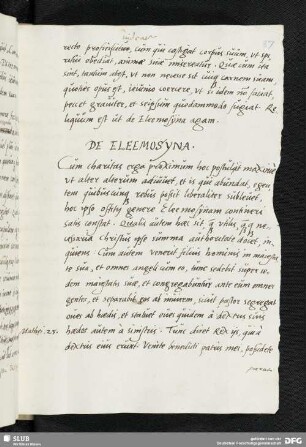 recto proficiscitur, cum qui castigat corpus suum, ut spi-
ritus obediat, animae suae misereatur. Quae cum ita
sint, tantum abest, ut non necesse sit cuiq carnem suam,
quoties opus est, ieiunio coercere, ut si idem nō faciat,
peccet grauiter, et seipsum quodammodo
liquum est ut de Eleemosyna agam.
DE ELEEMOSYNA.
Cum charitas erga proximum hoc postulat maxime
ut alter alterum adiuuet, et is qui abundat, egen-
tem quibuscunq rebus possit liberaliter subleuet,
hoc ipso officij genere Eleemosinam contineri
satis constat. Qualis autem haec sit q vtilis q ne-
cessaria Christus ipse summa authoritate docet, in-
quiens: Cum autem venerit filius hominis in maiesta-
te sua, et omnes angeli cum eo, tunc sedebit super se-
dem maiestatis suae, et congregabuntur ante eum omnes
gentes, et separabit eos ab inuicem, sicut pastor segregat
oues ab haedis, et statuet oues quidem à dextris suis
Matth. 25. haedos autem à sinistris. Tunc dicet Rex ijs, qui à
dextris eius erunt. Venite benedicti patris mei, possidete